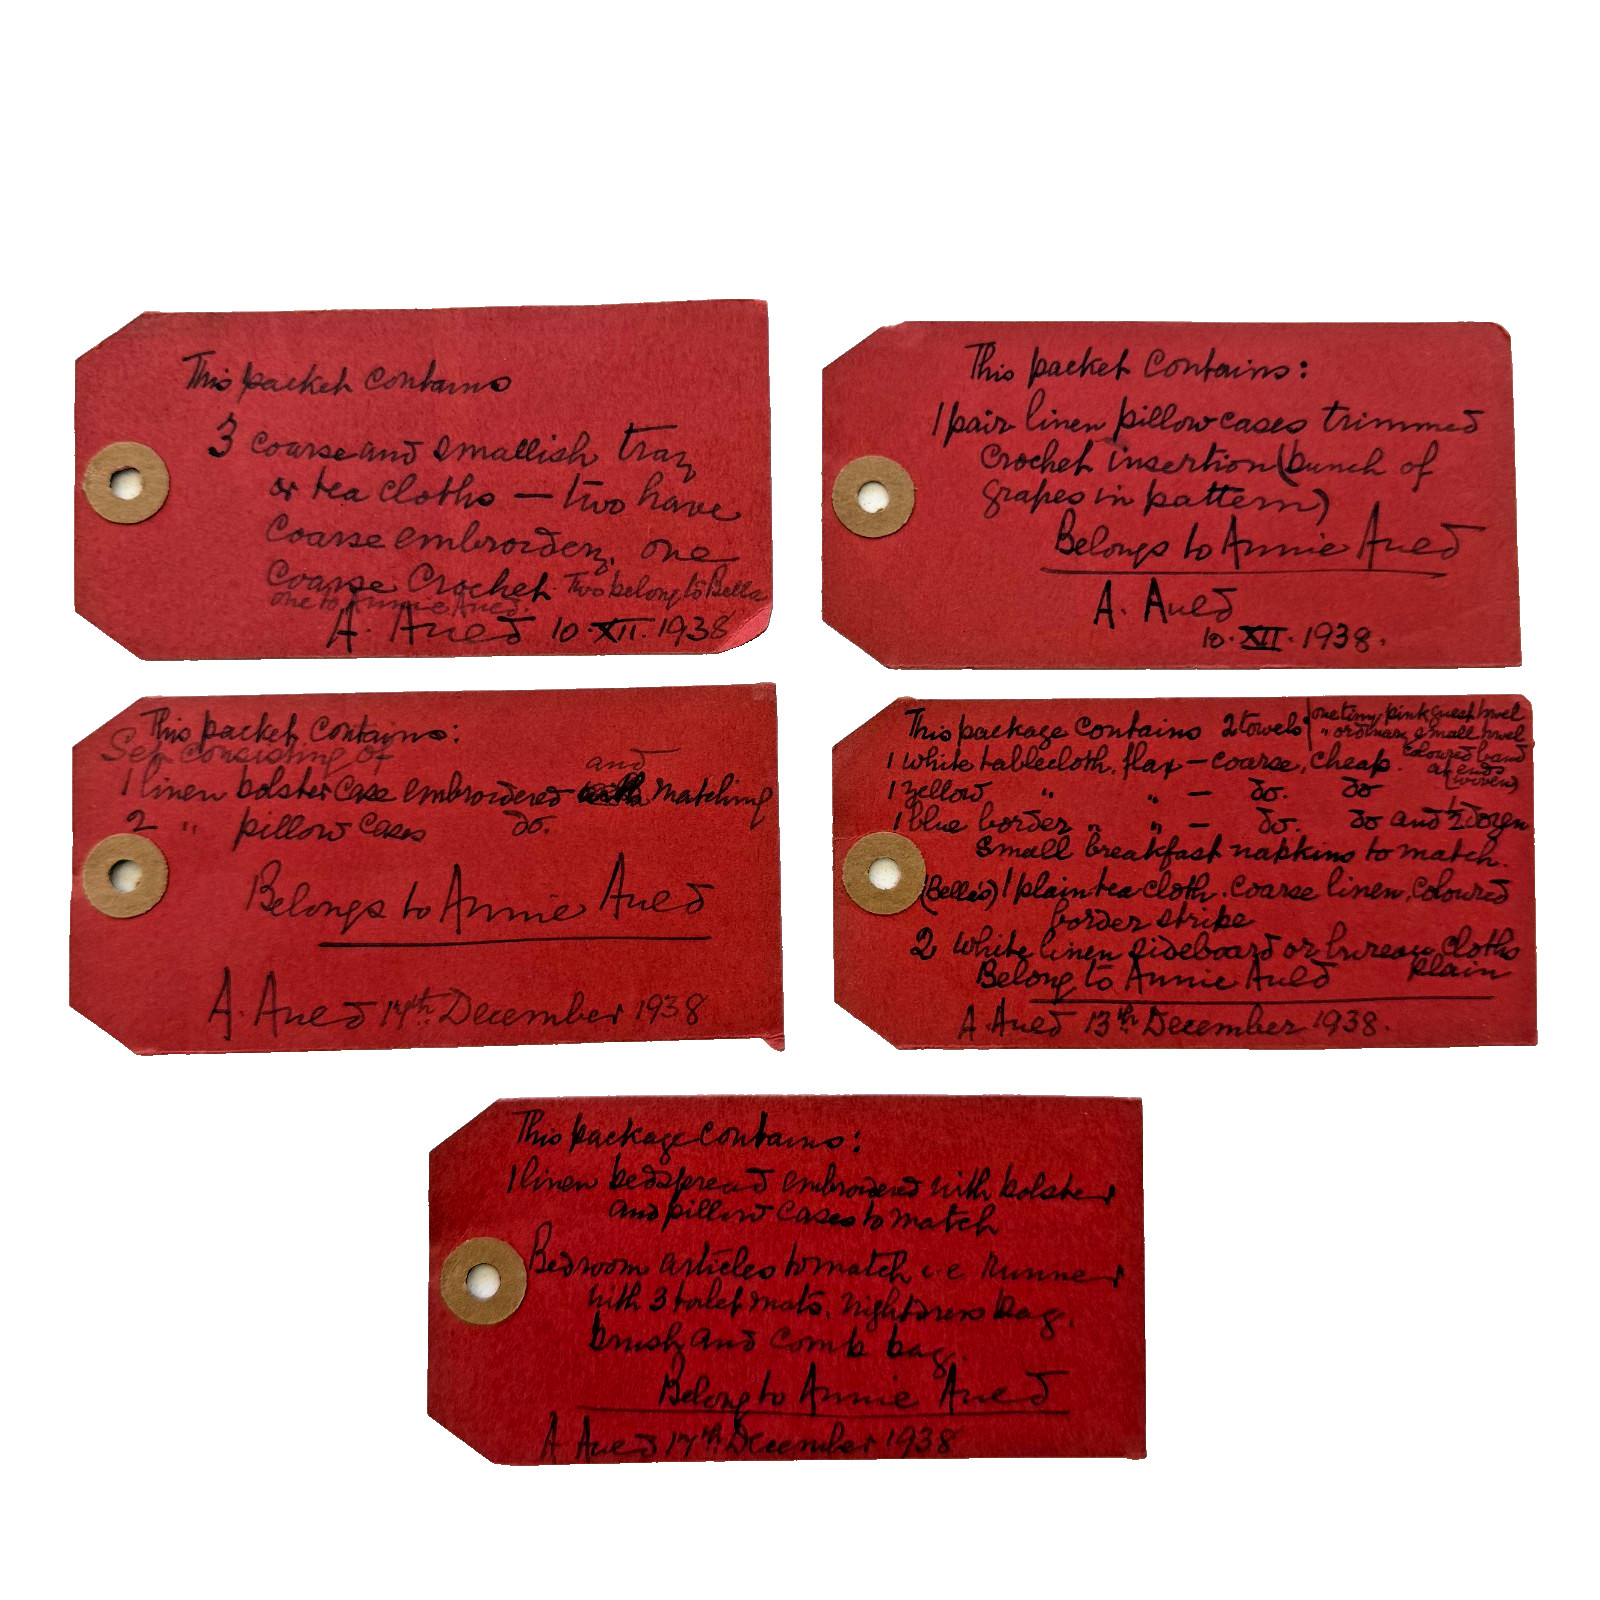 This packet contains
3 coarse and smallish tray
or tea cloths — two have
coarse embroidery, one
coarse crochet. Two belong to Bella
one to Annie Auld.
A. Auld 10.XII.1938
This packet contains:
1 pair linen pillow cases trimmed
crochet insertion (bunch of
grapes in pattern)
Belongs to Annie Auld
A. Auld
10.XII.1938.
This packet contains:
Set consisting of
and
1 linen bolster case embroidered with matching
2 " pillow cases do.
Belongs to Annie Auld
A. Auld 14th December 1938
This package contains 2 towels (one tiny pink guest towel
" ordinary small towel
coloured band
at ends
(woven)
1 white tablecloth, flax — coarse, cheap.
1 yellow " " — do. do
1 blue border " " — do. do and ½ dozen
small breakfast napkins to match.
(Bella's) 1 plain tea cloth. coarse linen, coloured
border stripe
2 white linen sideboard or bureau cloths
plain
Belong to Annie Auld
A. Auld 13th December 1938.
This package contains:
1 linen bedspread embroidered with bolster
and pillow cases to match
Bedroom articles to match i.e. runner
with 3 toilet mats, nightdress bag,
brush and comb bag.
Belong to Annie Auld
A Auld 14th December 1938